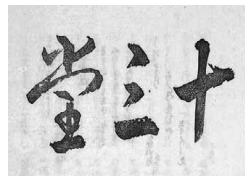 十三堂